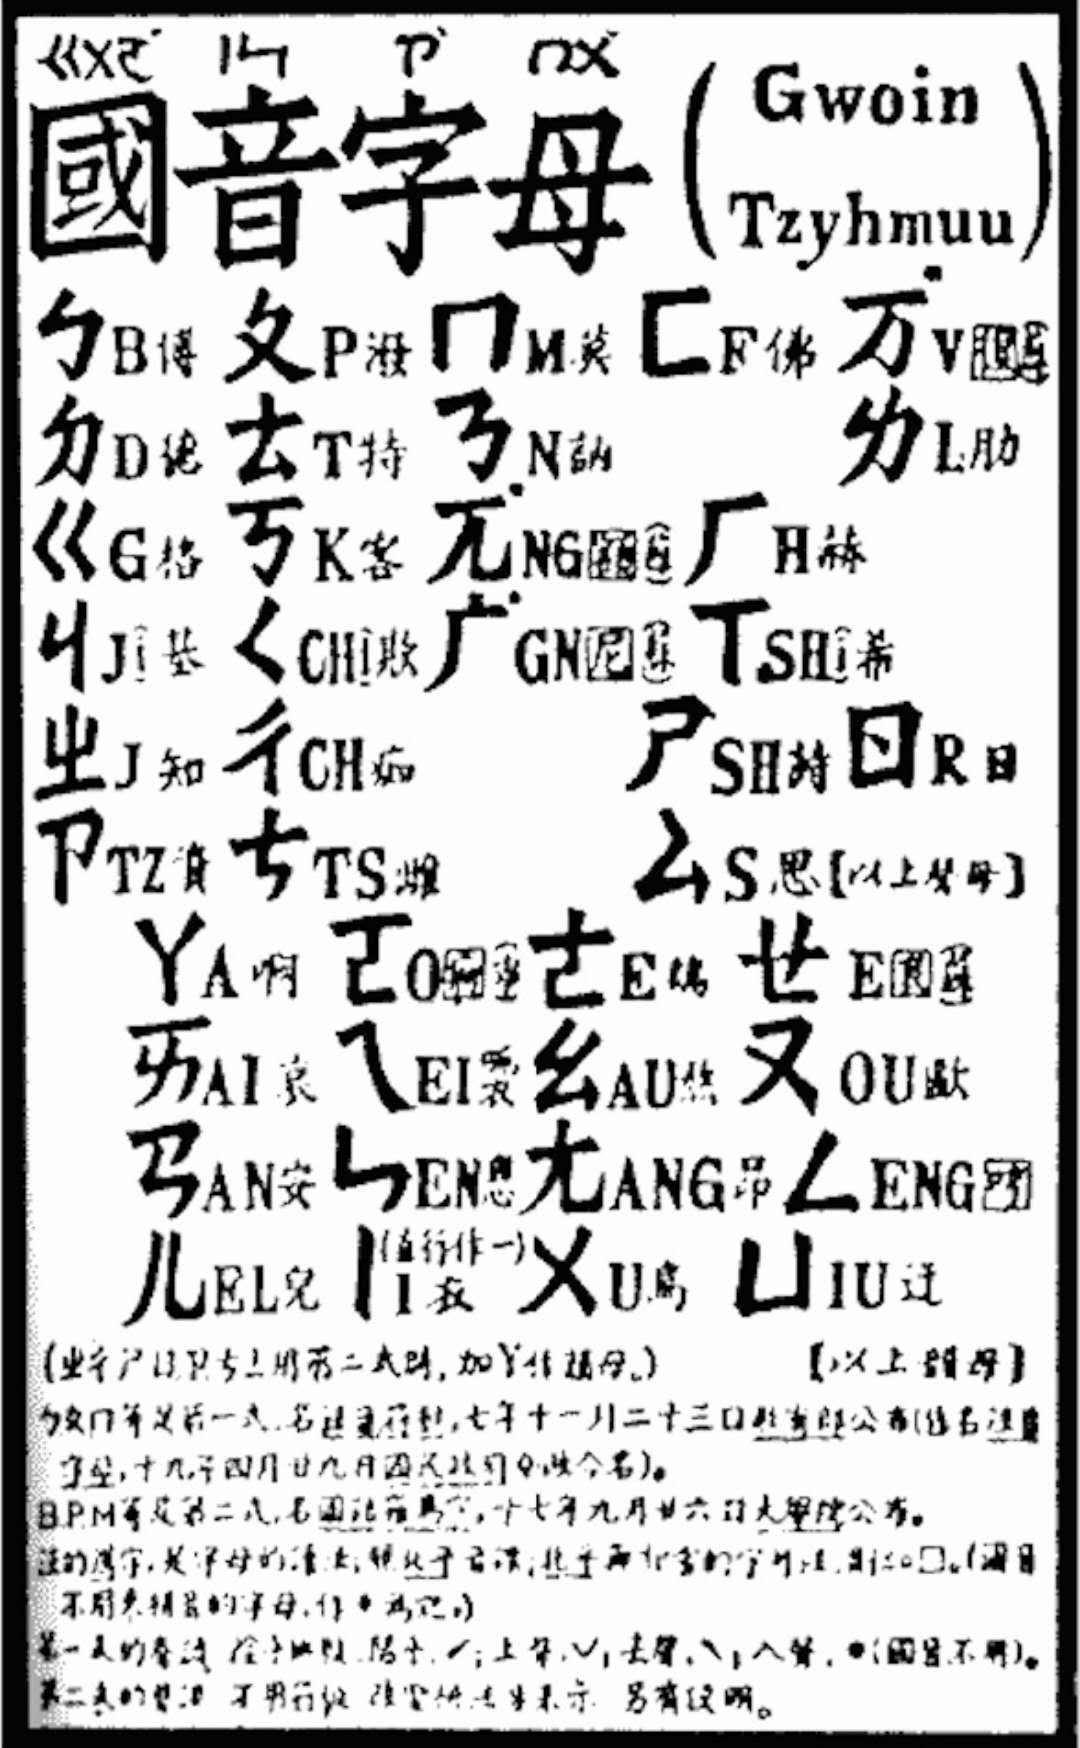 ㄍㄨㄛ ㄧㄣ ㄗ ㄇㄨ
國音字母 (Gwoin Tzyhmuu)
ㄅB博 ㄆP潑 ㄇM莫 ㄈF佛 万V
ㄉD德 ㄊT特 ㄋN訥 ㄌL肋
ㄍG格 ㄎK客 兀NG ㄏH赫
ㄐJi基 ㄑCHi欺 广GN ㄒSHi希
ㄓJ知 ㄔCH痴 ㄕSH詩 ㄖR日
ㄗTZ資 ㄘTS雌 ㄙS思 【以上聲母】
ㄚA啊 ㄛO ㄜE ㄝE
ㄞAI哀 ㄟEI ㄠAU ㄡOU歐
ㄢAN安 ㄣEN恩 ㄤANG昂 ㄥENG
ㄦEL兒 ㄧ(直行作一)I衣 ㄨU烏 ㄩIU迂
(ㄓㄔㄕㄖㄗㄘㄙ用第二式時,加Y作韻母。) 【以上韻母】
ㄅㄆㄇ等是第一式,名注音符號,七年十一月二十三日教育部公布(原名注音
字母,十九年四月廿九日國民政府令改今名)。
B.P.M等是第二式,名國語羅馬字,十七年九月廿六日大學院公布。
注的漢字,是字母的讀法;
不用來拼音的字母,作 為記。)
第一式的聲調 陽平,ˊ;上聲,ˇ;去聲,ˋ;入聲,•(國音不用)。
第二式的聲調 不用符號 另有說明。